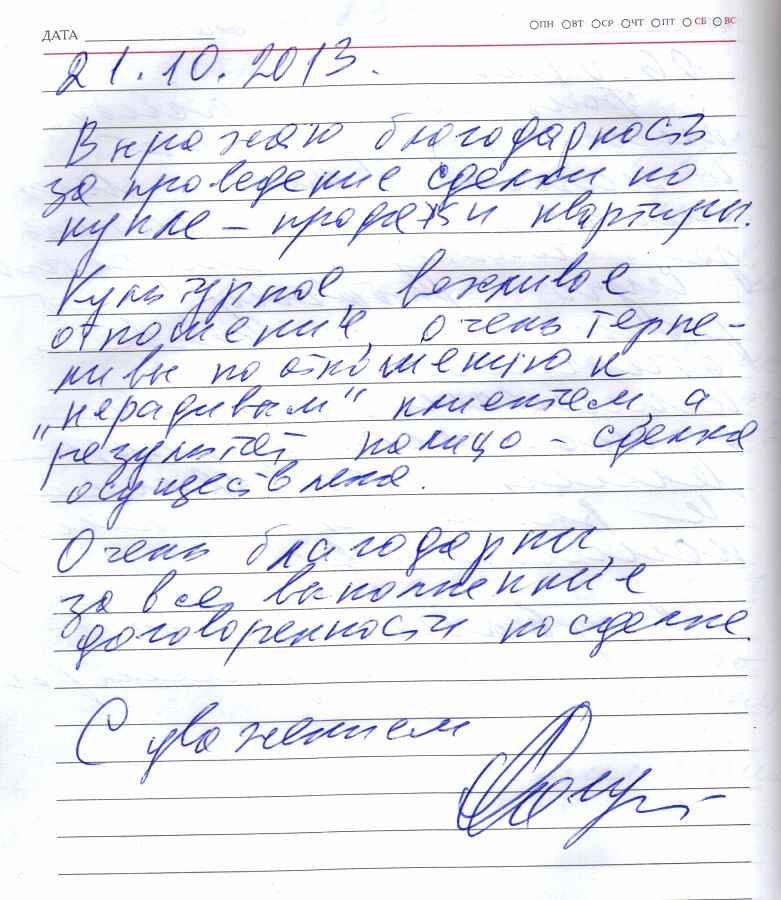 ДАТА
ПН ВТ СР ЧТ ПТ СБ ВС
21.10.2013.
Выражаю благодарность
за проведение сделки по
купле – продажи квартиры.
Культурное, вежливое
отношение, очень терпе-
ливы по отношению к
"нерадивым" клиентам, а
результат налицо – сделка
осуществлена.
Очень благодарны
за все выполненные
договоренности по сделке.
С уважением